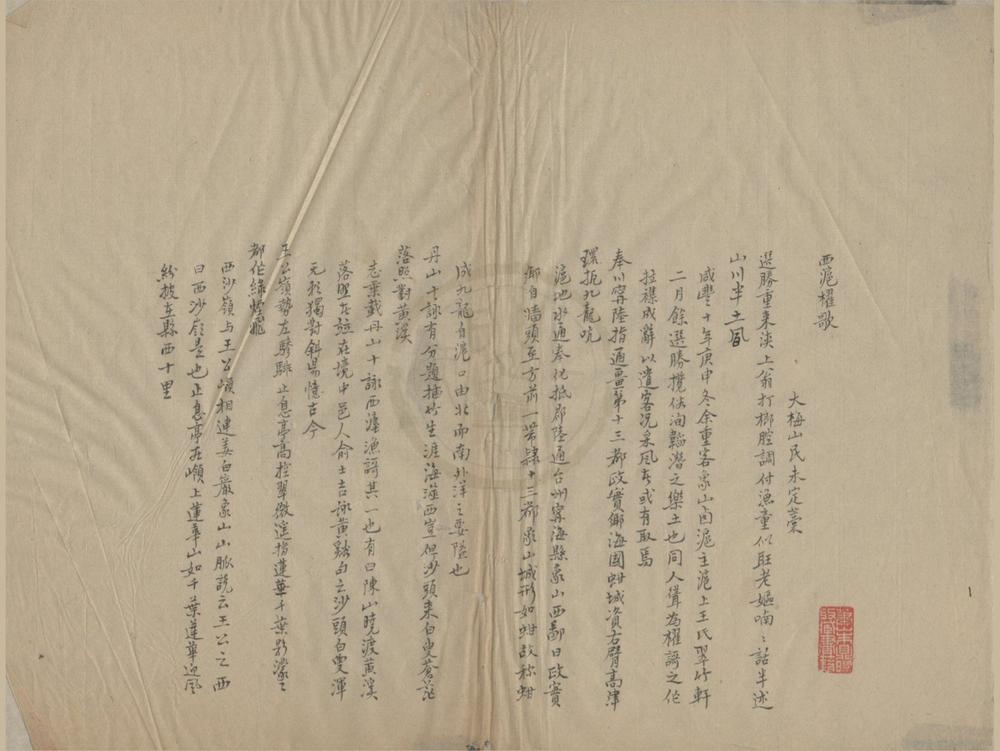 西滬櫂歌
大梅山民未定藁
選勝重來淡上翁打榔腔調付漁童似聽老嫗喃〻話半述
山川半土風
咸豐十年庚申冬余重客象山西滬主滬上王氏翠竹軒
二月餘選勝攬佚洵韜潛之樂土也同人聳為櫂謌之作
拉襍成辭以遣客況采風者或有取焉
奉川甯陸指通畺第十三都政實鄉海國蚶城資右臂高津
環扼九龍吭
滬地水通奉化抵郡陸通台州甯海縣象山西鄙曰政實
鄉自牆頭至方前一帶隸十三都象山城形如蚶故称蚶
成九龍自滬口由北而南外洋之要隘也
丹山十詠有分題插竹生涯海澨西豈但沙頭来白叟蒼茫
落照對黃溪
志乘載丹山十詠西瀛漁謌其一也有曰陳山曉渡黃溪
落照者竝在境中邑人俞士吉詠黃谿句云沙頭白叟渾
元杉獨對斜陽憶古今
王公嶺勢左驂騑止息亭高控翠微遥指蓮華千葉影濛〻
都作綠烟飛
西沙嶺与王公嶺相連姜白巖象山山脈說云王公之西
曰西沙嶺是也止息亭在嶺上蓮華山如千葉蓮華迎風
紛披在縣西十里